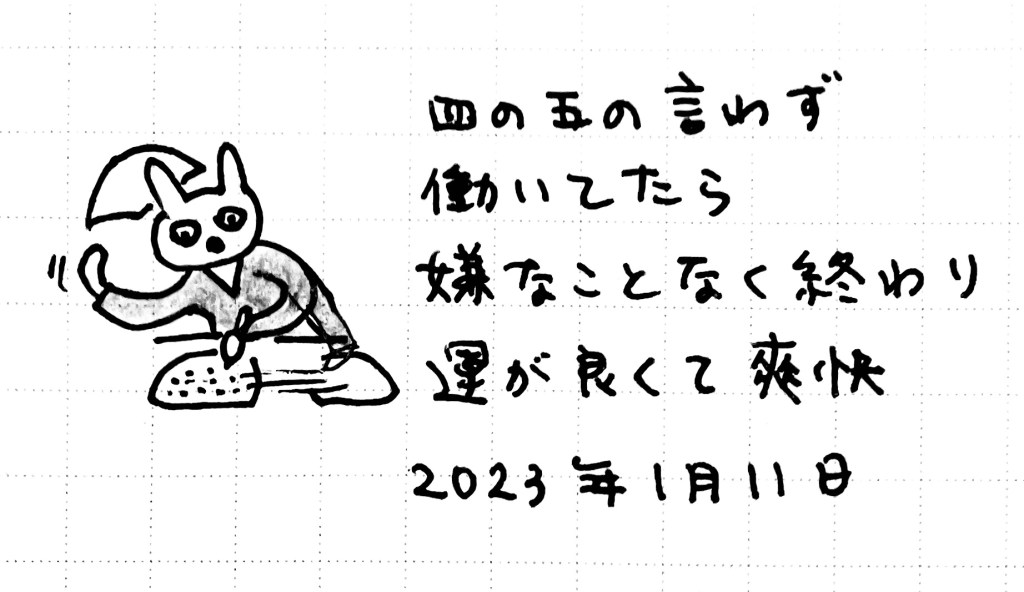 四の五の言わず
働いてたら
嫌なことなく終わり
運が良くて爽快
2023年1月11日